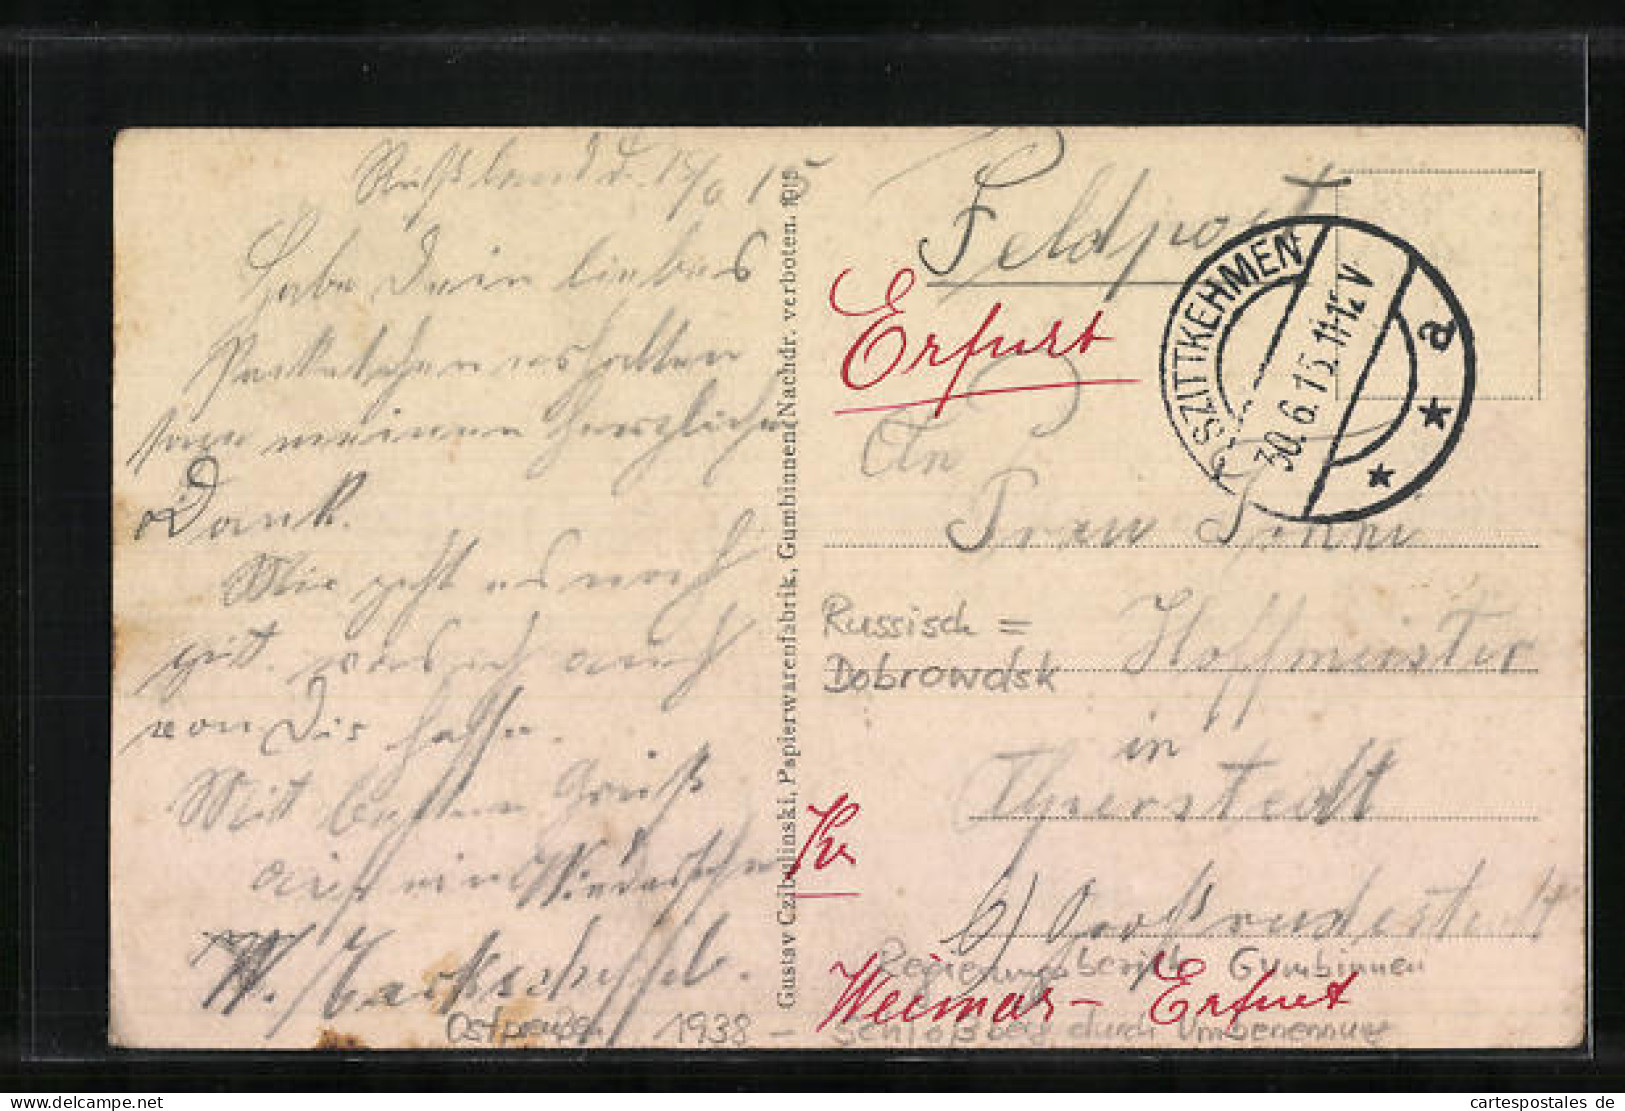 Rußland d. 15
Habe Dein liebes
Packetchen erhalten
sage meinen herzlichen
Dank.
Mir geht es noch
gut. was ich auch
von Dir hoffe.
Mit besten Gruß
auf ein Wiedersehn
W.
Gustav Czibulinski, Papierwarenfabrik, Gumbinnen. Nachdr. verboten. 1915
Feldpost
SZITTKEHMEN
30.6.15.11-12 V
a
Erfurt
An
Frau
Hoffmeister
Russisch =
Dobrowolsk
in
Thierstedt
Kr
b) Großrudestedt
Regierungsbezirk Gumbinnen
Weimar - Erfurt
Ostpreußen 1938 - Schloßberg durch Umbenennung
cartespostales de